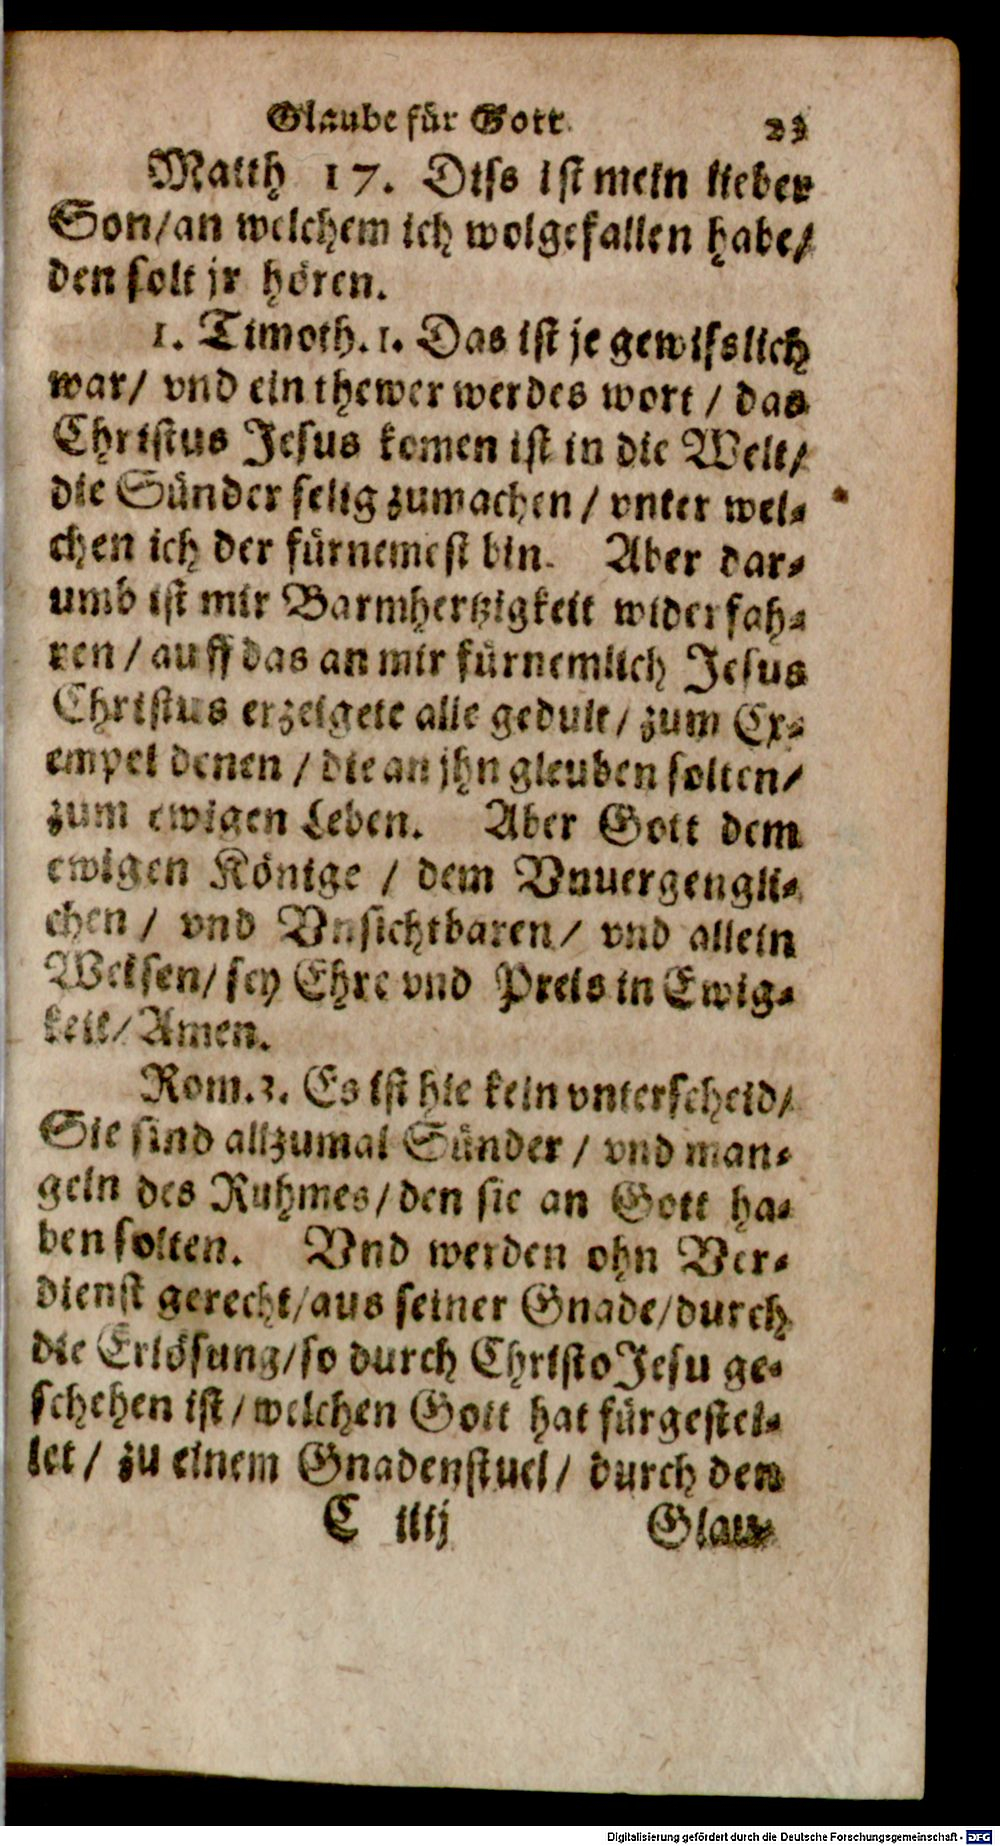 Glaube für Gott. 23
Matth 17. Diſs iſt mein lieber
Son/an welchem ich wolgefallen habe/
den ſolt jr hören.
1. Timoth. 1. Das iſt je gewiſslich
war/ vnd ein thewer werdes wort / das
Chriſtus Jeſus komen iſt in die Welt/
die Sünder ſelig zumachen / vnter wel-
chen ich der fürnemeſt bin. Aber dar-
umb iſt mir Barmhertzigkeit widerfah-
ren / auff das an mir fürnemlich Jeſus
Chriſtus erzeigete alle gedult / zum Ex-
empel denen / die an jhn gleuben ſolten/
zum ewigen Leben. Aber Gott dem
ewigen Könige / dem Vnuergengli-
chen / vnd Vnſichtbaren / vnd allein
Weiſen/ ſey Ehre vnd Preis in Ewig-
keit/ Amen.
Rom. 3. Es iſt hie kein vnterſcheid/
Sie ſind allzumal Sünder / vnd man-
geln des Ruhmes/ den ſie an Gott ha-
ben ſolten. Vnd werden ohn Ver-
dienſt gerecht/aus ſeiner Gnade/durch
die Erlöſung/ſo durch Chriſto Jeſu ge-
ſchehen iſt / welchen Gott hat fürgeſtel-
let / zu einem Gnadenſtuel / durch den
C iiij Glau-
Digitalisierung gefördert durch die Deutsche Forschungsgemeinschaft - DFG